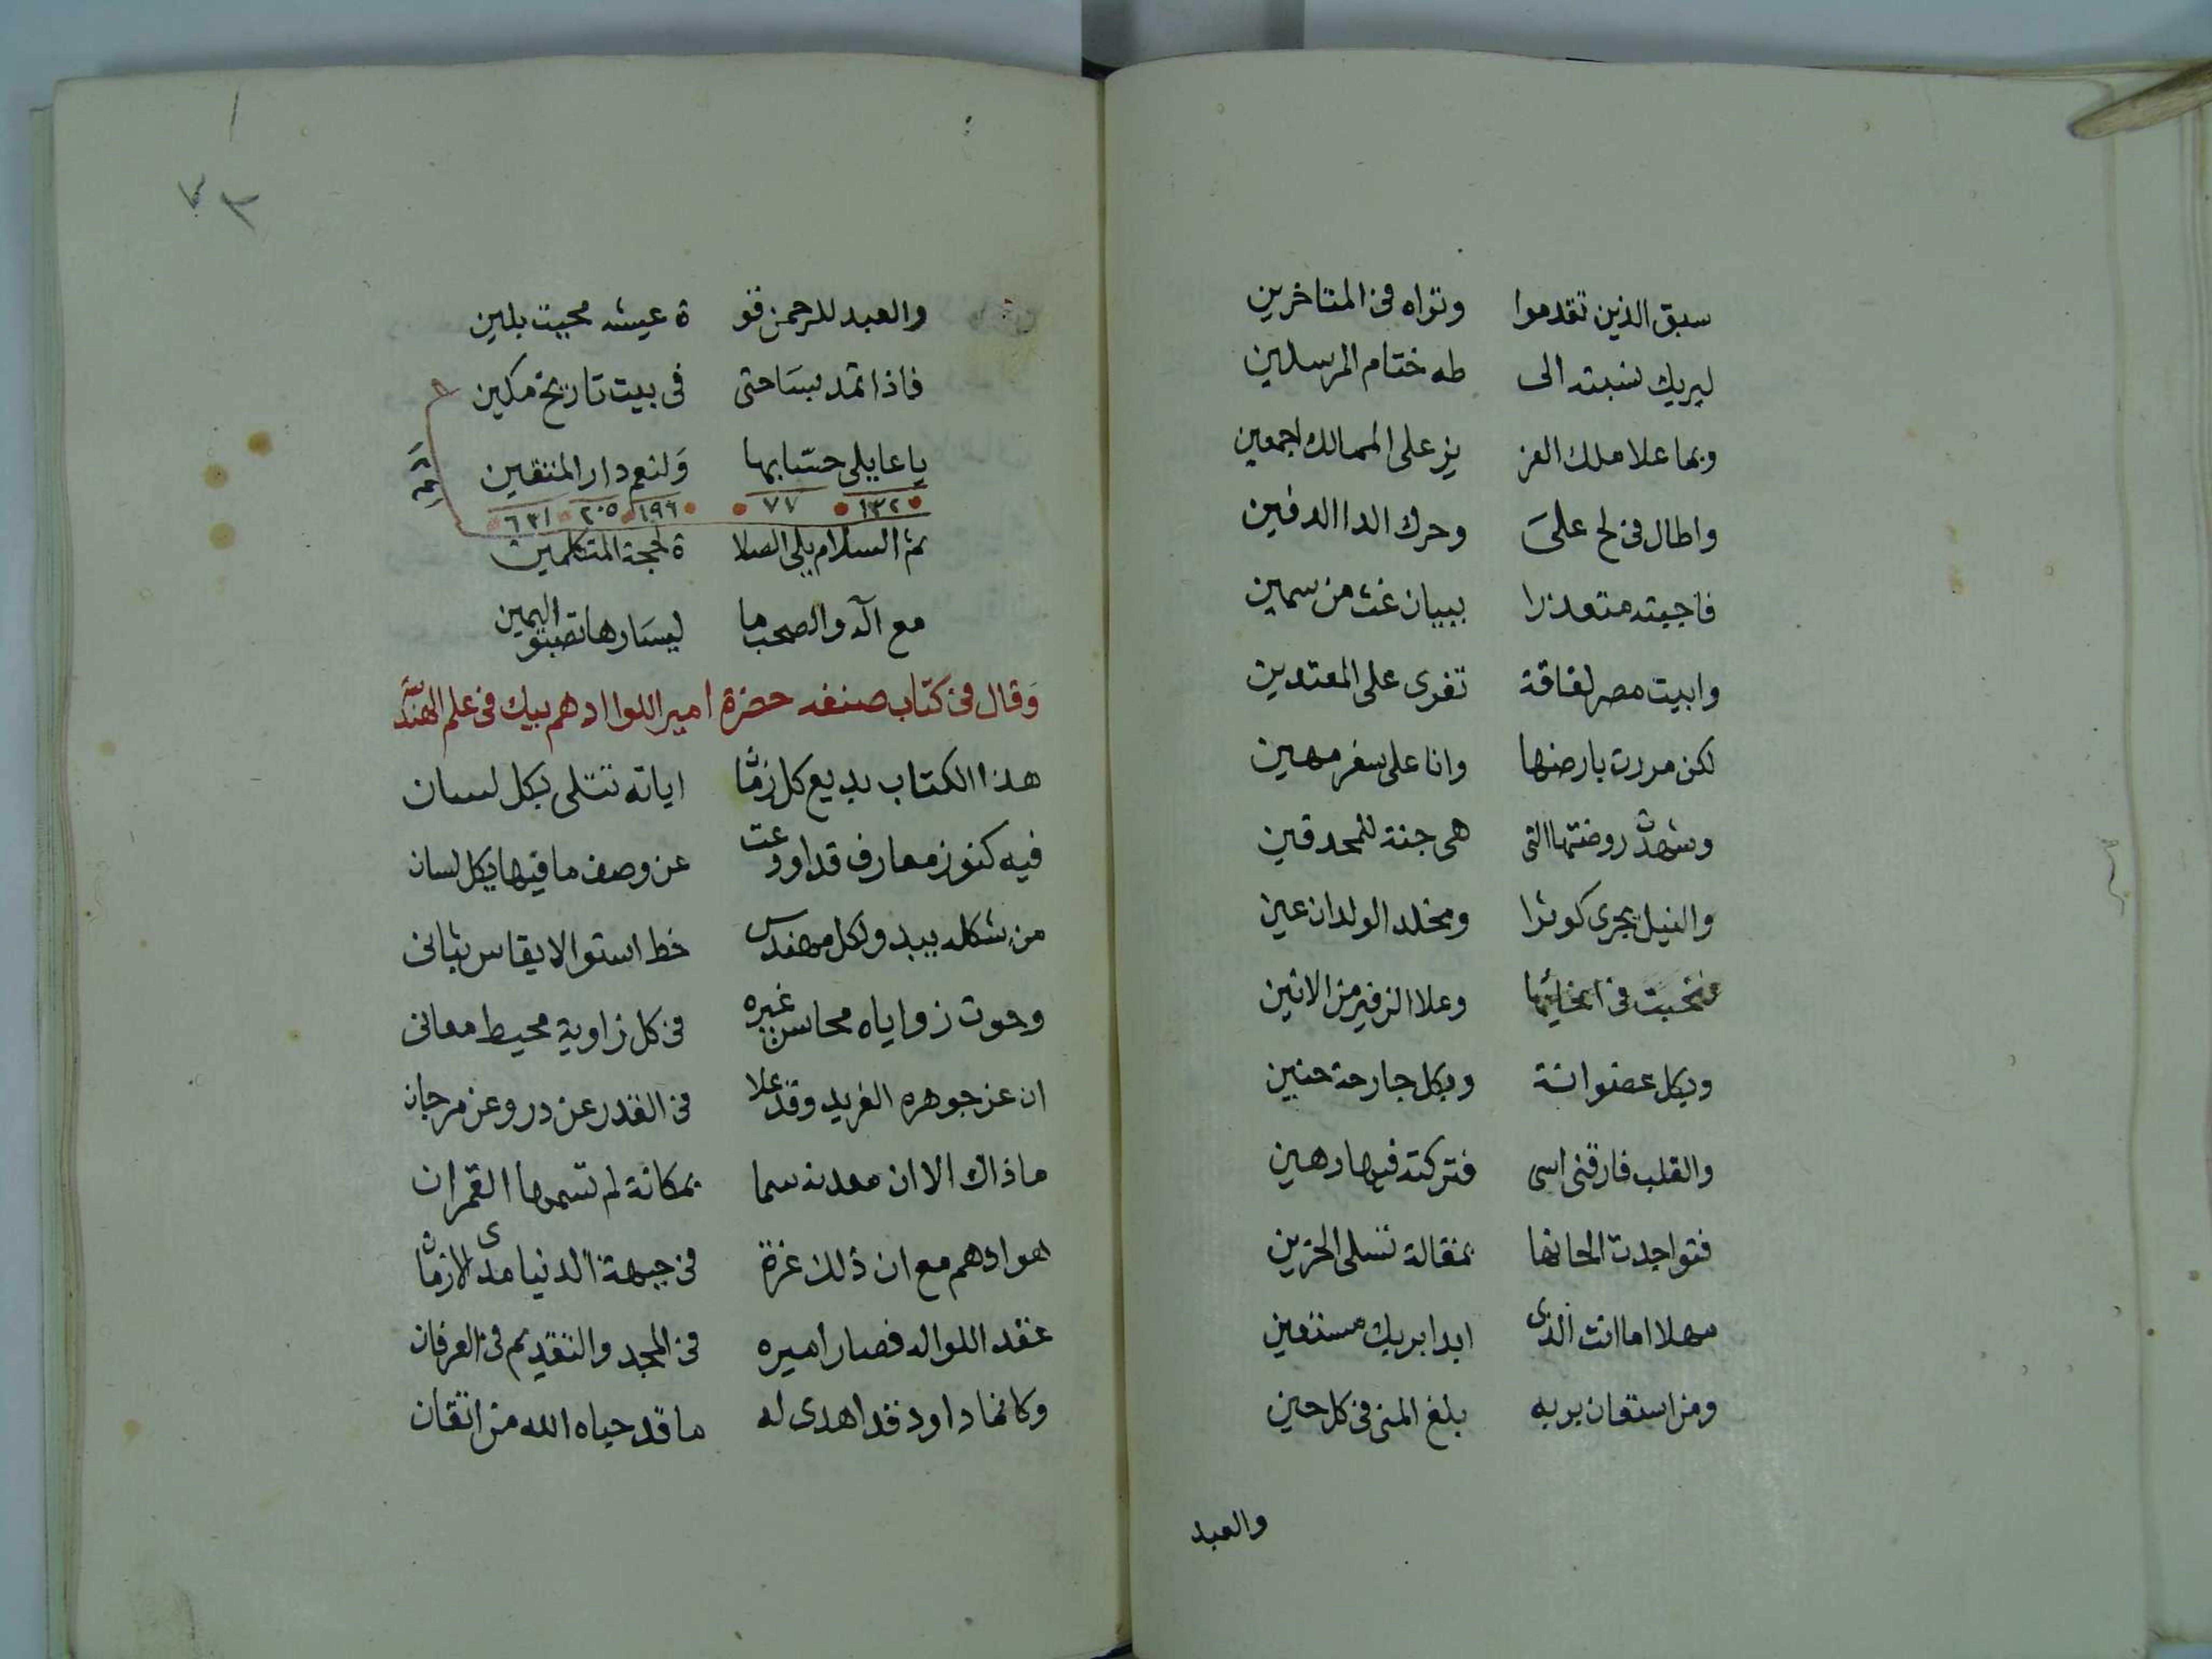 سبق الذين تقدموا وتراه فى المتاخرين
ليريك نسبته الى طه ختام المرسلين
وبها علا ملك العز يز على الممالك اجمعين
واطال فى لح على وحرك الدا الدفين
فاجبته متعذرا ببيان غث من سمين
وابيت مصر لفاقة تغرى على المعتدين
لكن مررت بارضها وانا على سفر مهين
وشهدت روضتها التى هى جنة للمحدقين
والنيل يجرى كوثرا ومخلد الولدان عين
فى وعلا الزفير من الانين
وبكل عضو انة وبكل جارحة حنين
والقلب فارقنى اسى فتركته فيها رهين
فتواجدت الحانها بمقالة تسلى الحزين
مهلا اما انت الذى ابدا بربك مستعين
ومن استعان بربه بلغ المنى فى كل حين
والعبد
٧٣
والعبد للرحمن قو ة عيشه محبيت بلين
فاذا تمد بساحتى فى بيت تاريخ مكين
يا عا يلى حسابها ولنعم دار المتقين
١٣٢ ٧٧ ١٩٦ ٢٠٥ ٦٣١
ثم السلام يلى الصلا ة لحجة المتكلمين
مع آله والصحب ما ليسارها تصبو اليمين
وقال فى كتاب صنفه حضرة امير اللوا ادهم بيك فى علم الهندسة
هذا الكتاب بديع كل زمان اياته تتلى بكل لسان
فيه كنوز معارف قد اودعت عن وصف ما فيها يكل لسان
من شكله يبدو لكل مهندس خط استوا لا يقاس بثانى
وحوت زواياه محاسن غيره فى كل زاوية محيط معانى
ان عز جوهره الفريد وقد علا فى القدر عن در وعن مرجان
ما ذاك الا ان معدنه سما بمكانة لم تسمها القمران
هو ادهم مع ان ذلك غرة فى جبهة الدنيا مدى الازمان
عقد اللوا له فصار اميره فى المجد والتقديم فى العرفان
وكانما داود قد اهدى له ما قد حباه الله من اتقان